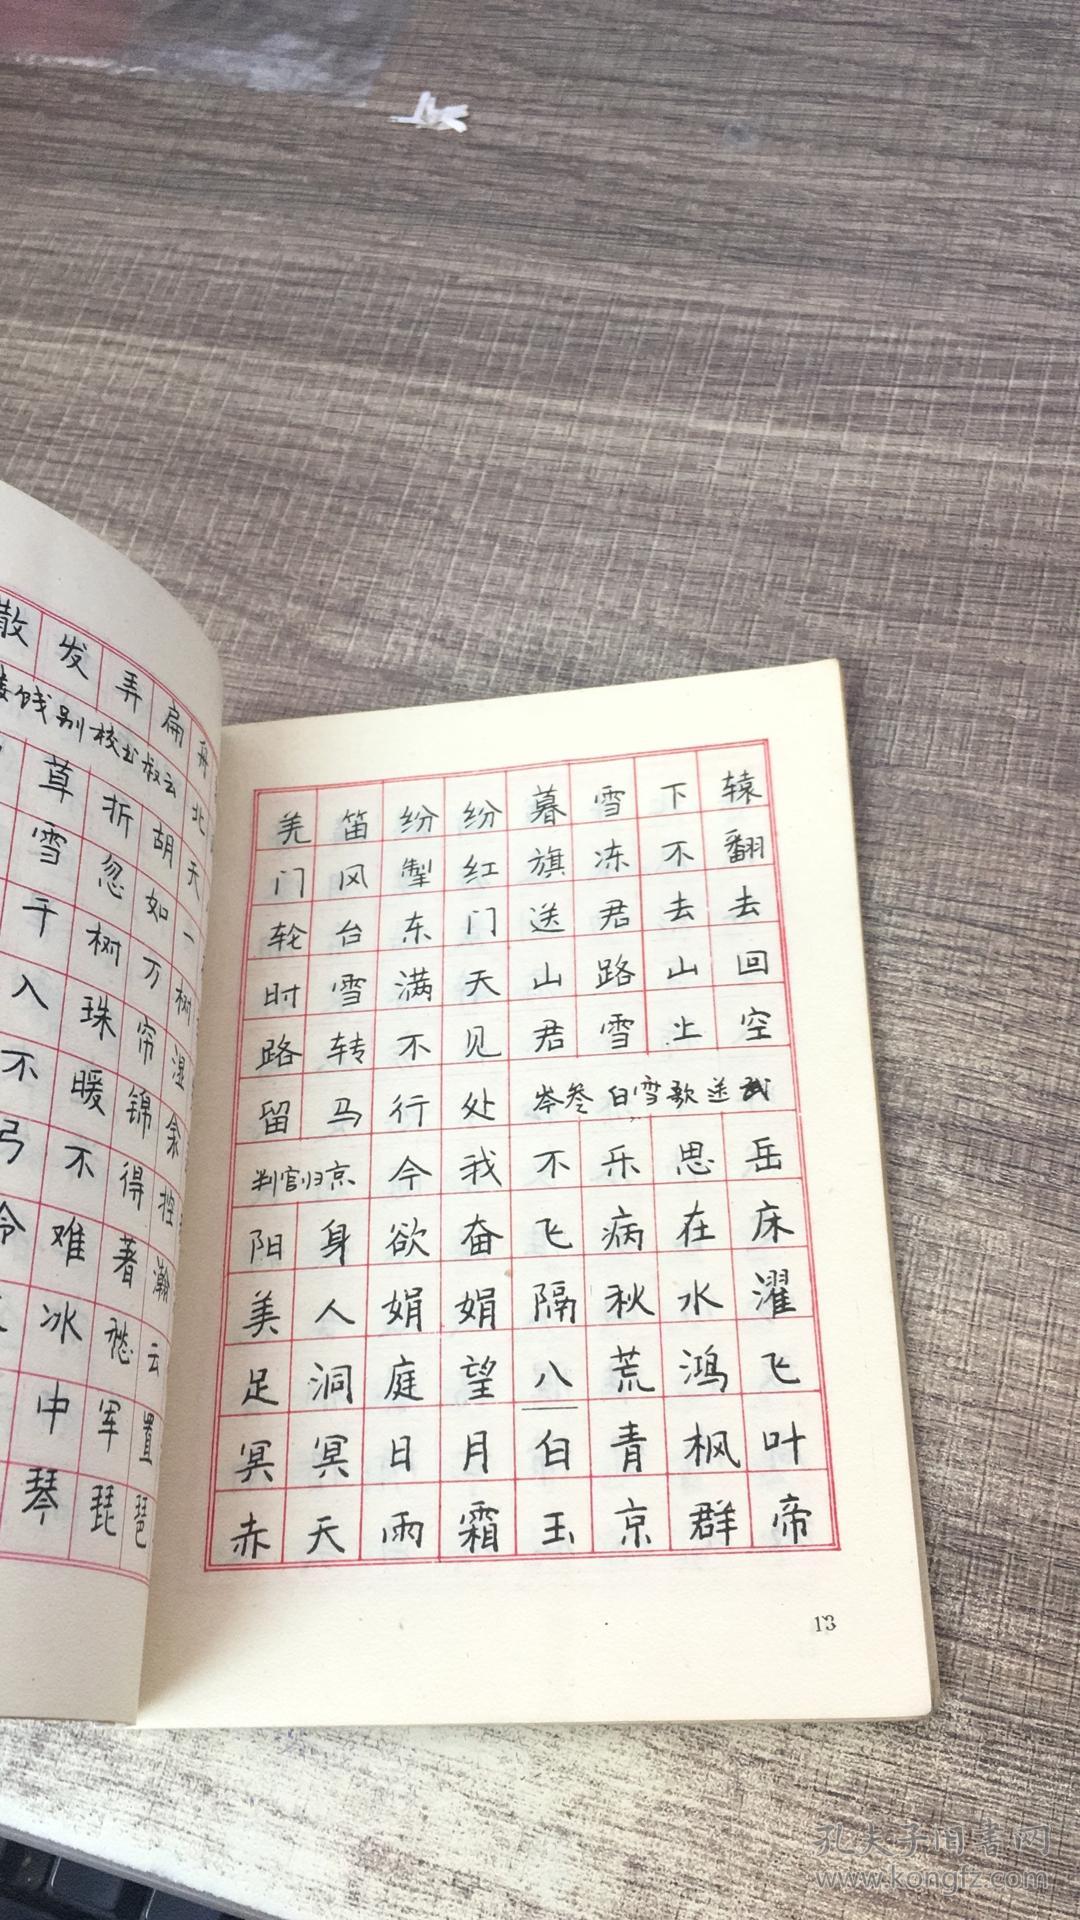 散发弄扁舟
饯别校书叔云
草折胡北
雪忽如天
千树万树一
入珠帘湿
不暖锦余
弓不得控
冷难著瀚
冰愁云
中军置
琴琵琶
羌笛纷纷暮雪下辕
门风掣红旗冻不翻
轮台东门送君去去
时雪满天山路山回
路转不见君雪上空
留马行处岑参 白雪歌送武
判官归京今我不乐思岳
阳身欲奋飞病在床
美人娟娟隔秋水濯
足洞庭望八荒鸿飞
冥冥日月白青枫叶
赤天雨霜玉京群帝
13
孔夫子旧书网
www.kongfz.com